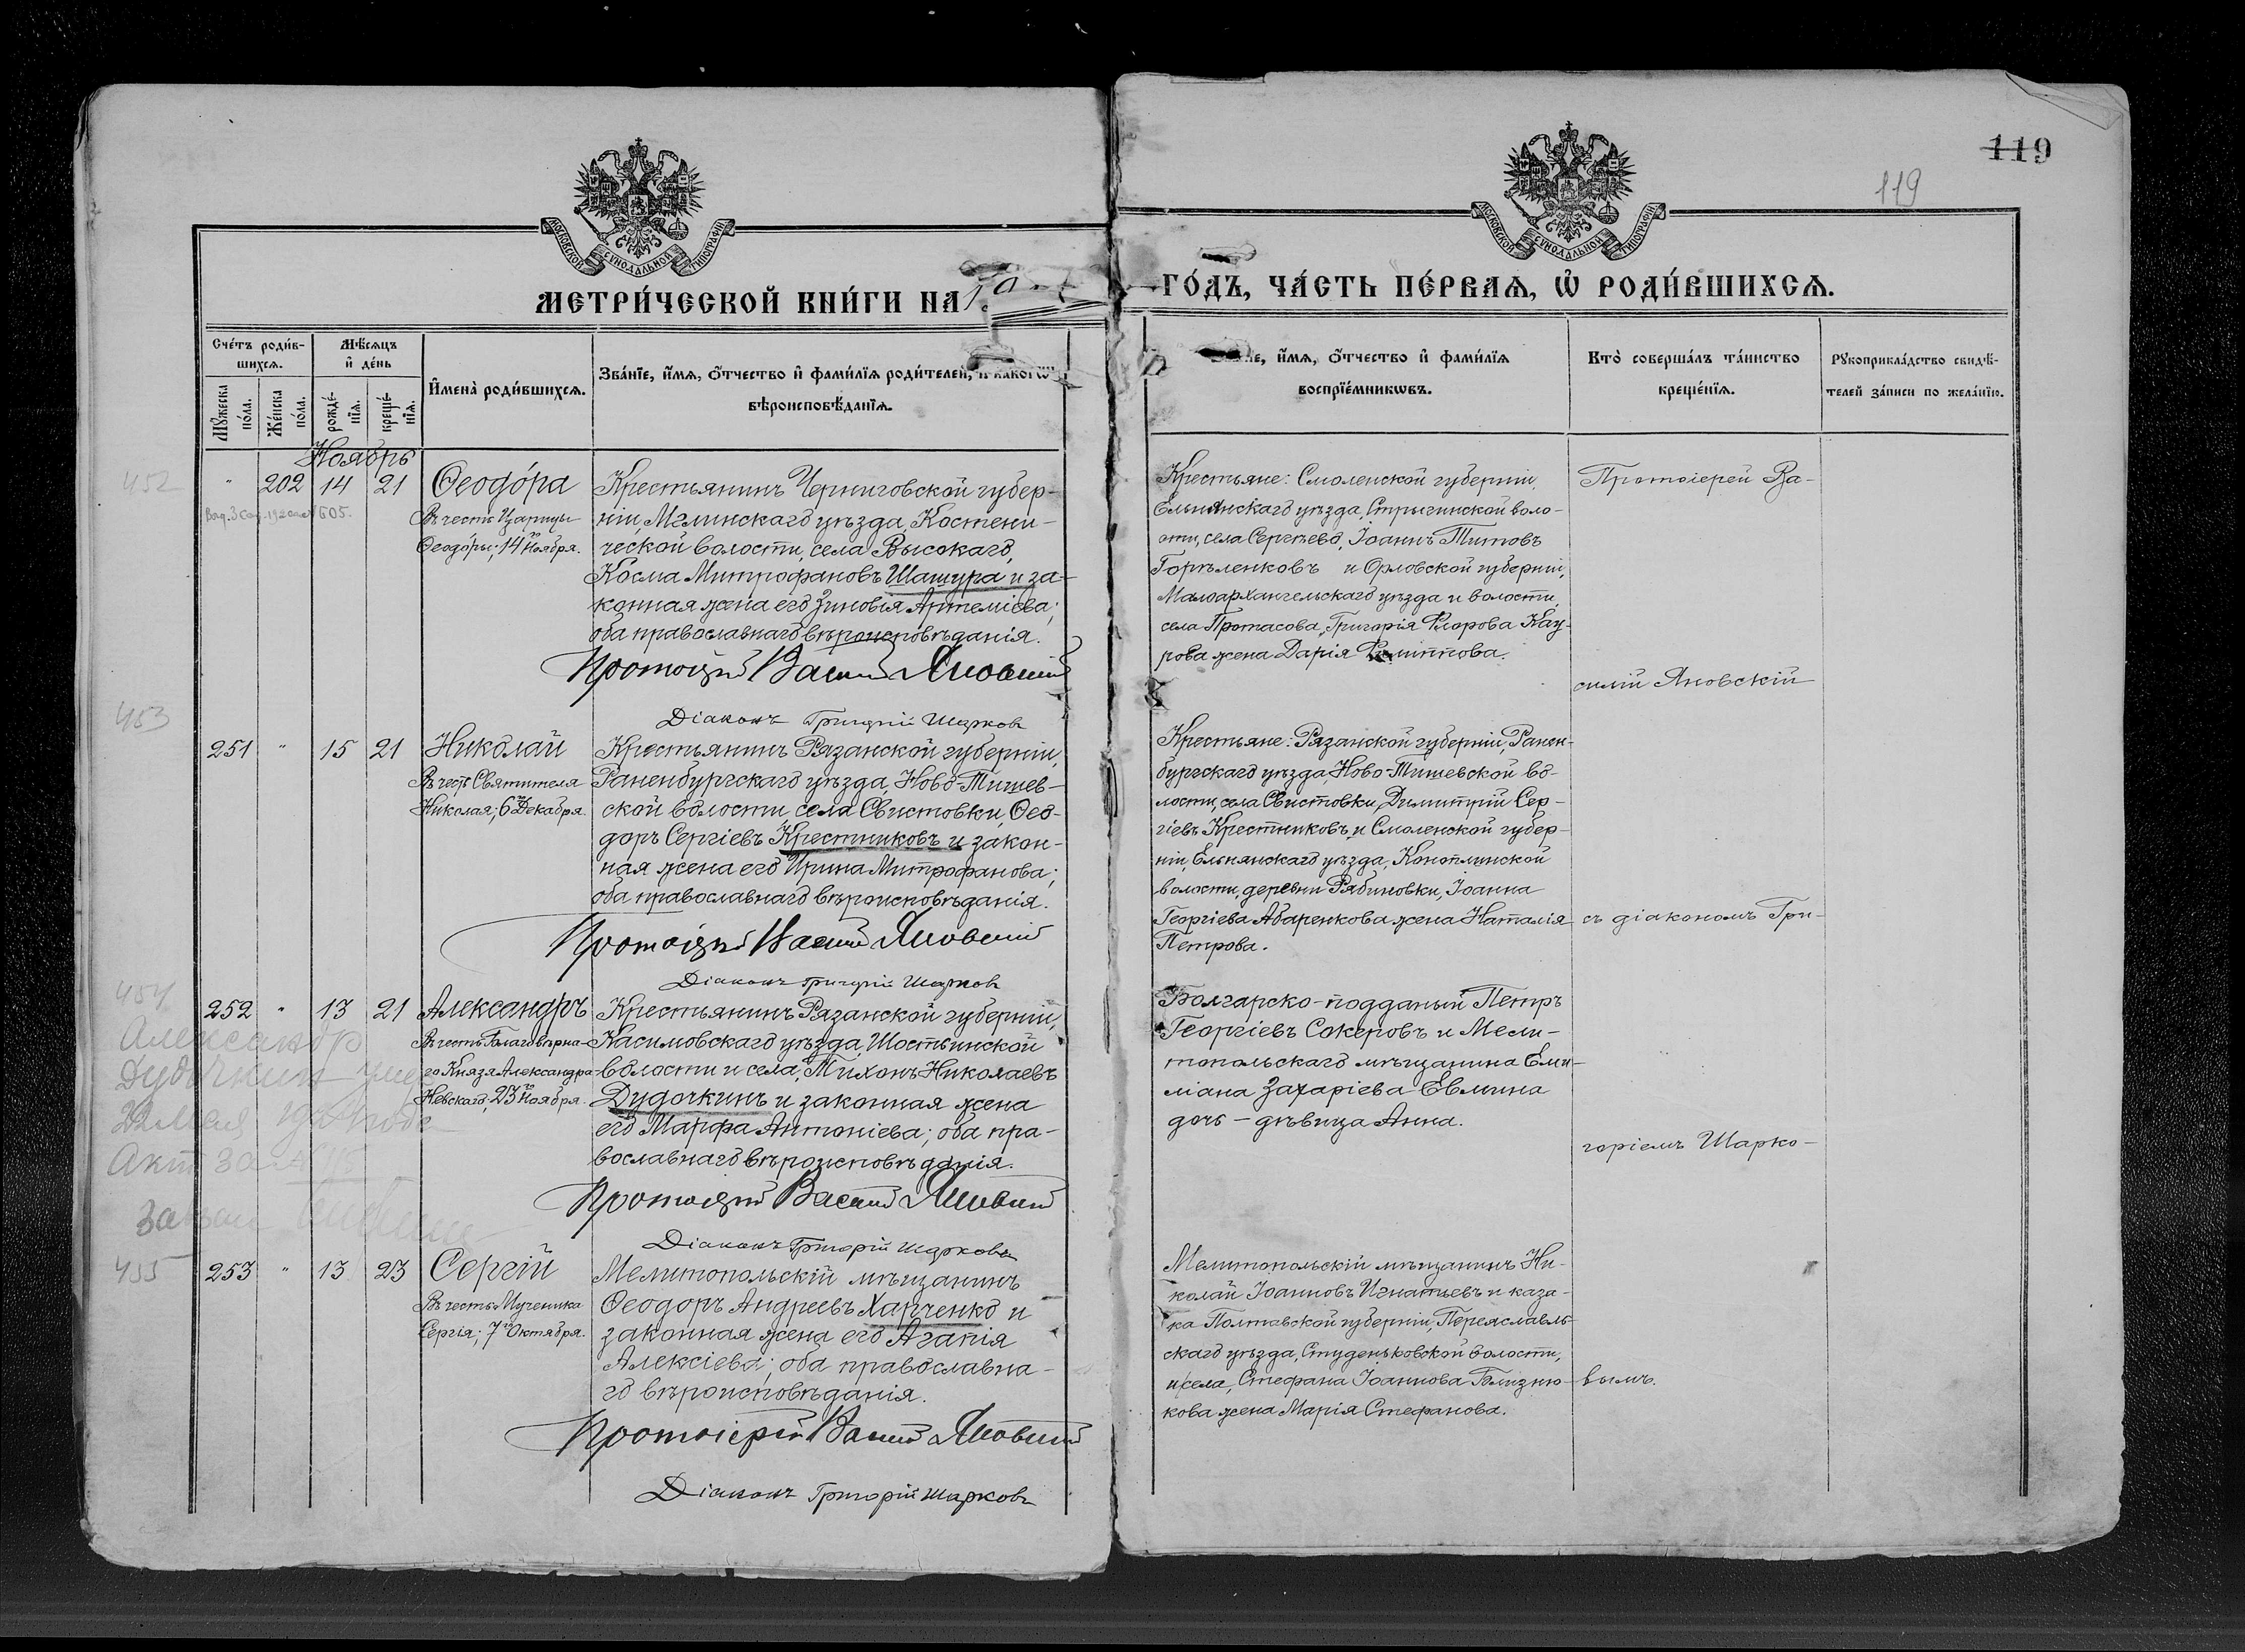 119
119
МОСКОВСКОЙ СѴНОДАЛЬНОЙ ТИПОГРАФІИ
МОСКОВСКОЙ СѴНОДАЛЬНОЙ ТИПОГРАФІИ
МЕТРИ́ЧЕСКОЙ КНИ́ГИ НА
ГО́ДЪ, ЧА́СТЬ ПЕ́РВАѦ, Ѡ҆ РОДИ́ВШИХСѦ.
Сче́тъ роди́в-
шихсѧ.
Мꙋ́жеска по́ла.
Же́нска по́ла.
Мѣ́сѧцъ
и҆ де́нь
рожде́-
нїѧ.
креще́-
нїѧ.
И҆мена̀ роди́вшихсѧ.
Зва́нїе, и҆́мѧ, о҆́тчество и҆ фами́лїѧ роди́телей, и҆ како́гѡ
вѣроисповѣ́данїѧ.
и҆́мѧ, о҆́тчество и҆ фами́лїѧ
воспрїе́мникѡвъ.
Кто̀ соверша́лъ та́инство
креще́нїѧ.
Рꙋкоприкла́дство свидѣ́-
телей за́писи по жела́нїю.
Ноябрь
452
" 202 14 21
Ѳеодо́ра
Въ честь Царицы
Ѳеодо́ры; 14го Ноября.
Крестьянинъ Черниговской губер-
ніи, Мглинскаго уѣзда, Костени-
ческой волости, села Высокаго,
Косма Митрофановъ Шашура и за-
конная жена его Зиновія Артеміева;
оба православнаго вѣроисповѣданія.
Протоіерей Василій Яновскій
Діаконъ Григорій Шарковъ
Крестьяне: Смоленской губерніи,
Ельнинскаго уѣзда, Стригинской воло-
сти, села Сергѣево, Іоаннъ Титовъ
Горѣленковъ и Орловской губерніи,
Малоархангельскаго уѣзда и волости,
села Протасова, Григорія Флорова Кау-
рова жена Дарія Филиппова.
Протоіерей Ва-
силій Яновскій
453
251 " 15 21
Николай
Въ честь Святителя
Николая; 6го Декабря.
Крестьянинъ Рязанской губерніи,
Раненбургскаго уѣзда, Ново-Тишев-
ской волости, села Свистовки, Ѳео-
доръ Сергіевъ Крестниковъ и закон-
ная жена его Ирина Митрофанова;
оба православнаго вѣроисповѣданія.
Протоіерей Василій Яновскій
Діаконъ Григорій Шарковъ
Крестьяне: Рязанской губерніи, Ранен-
бургскаго уѣзда, Ново-Тишевской во-
лости, села Свистовки, Димитрій Сер-
гіевъ Крестниковъ и Смоленской губер-
ніи, Ельнянскаго уѣзда, Коноплинской
волости, деревни Рябиновки, Іоанна
Георгіева Абаренкова жена Наталія
Петрова.
съ діакономъ Гри-
454
252 " 13 21
Александръ
Въ честь Благовѣрна-
го Князя Александра
Невскаго; 23го Ноября.
Александр
Дудочкин
Акт
Крестьянинъ Рязанской губерніи,
Касимовскаго уѣзда, Шостьинской
волости и села, Тихонъ Николаевъ
Дудочкинъ и законная жена
его Марфа Антоніева; оба пра-
вославнаго вѣроисповѣданія.
Протоіерей Василій Яновскій
Діаконъ Григорій Шарковъ
Болгарско-подданый Петръ
Георгіевъ Сокеровъ и Мели-
топольскаго мѣщанина Еми-
ліана Захаріева Евмина
дочь - дѣвица Анна.
горіемъ Шарко-
455
253 " 13 23
Сергій
Въ честь Мученика
Сергія; 7го Октября.
Мелитопольскій мѣщанинъ
Ѳеодоръ Андреевъ Харченко и
законная жена его Агапія
Алексіева; оба православна-
го вѣроисповѣданія.
Протоіерей Василій Яновскій
Діаконъ Григорій Шарковъ
Мелитопольскій мѣщанинъ Ни-
колай Іоанновъ Игнатьевъ и каза-
ка Полтавской губерніи, Переяславль-
скаго уѣзда, Студеньковской волости,
и села, Стефана Іоаннова Близню-
кова жена Марія Стефанова.
вымъ.